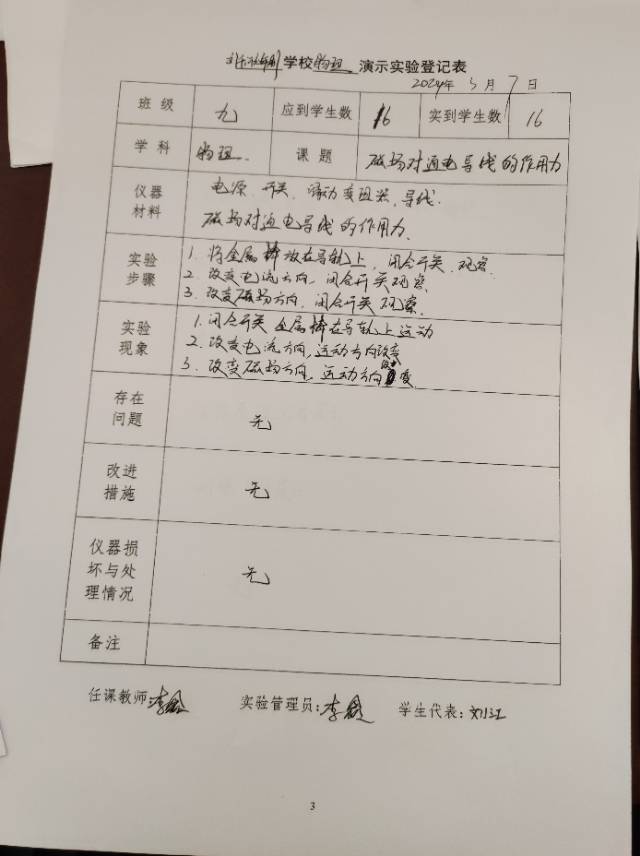 学校 物理 演示实验登记表
2024年 3月 7日
班级 九 应到学生数 16 实到学生数 16
学科 物理. 课题 磁场对通电导线的作用力
仪器材料 电源、开关、滑动变阻器、导线.
磁场对通电导线的作用力.
实验步骤 1. 将金属棒放在导轨上, 闭合开关, 观察.
2. 改变电流方向, 闭合开关观察.
3. 改变磁场方向, 闭合开关观察.
实验现象 1. 闭合开关 金属棒在导轨上运动
2. 改变电流方向, 运动方向改变
3. 改变磁场方向, 运动方向改变
存在问题 无
改进措施 无
仪器损坏与处理情况 无
备注
任课教师: 李 实验管理员: 李 学生代表: 刘江
3